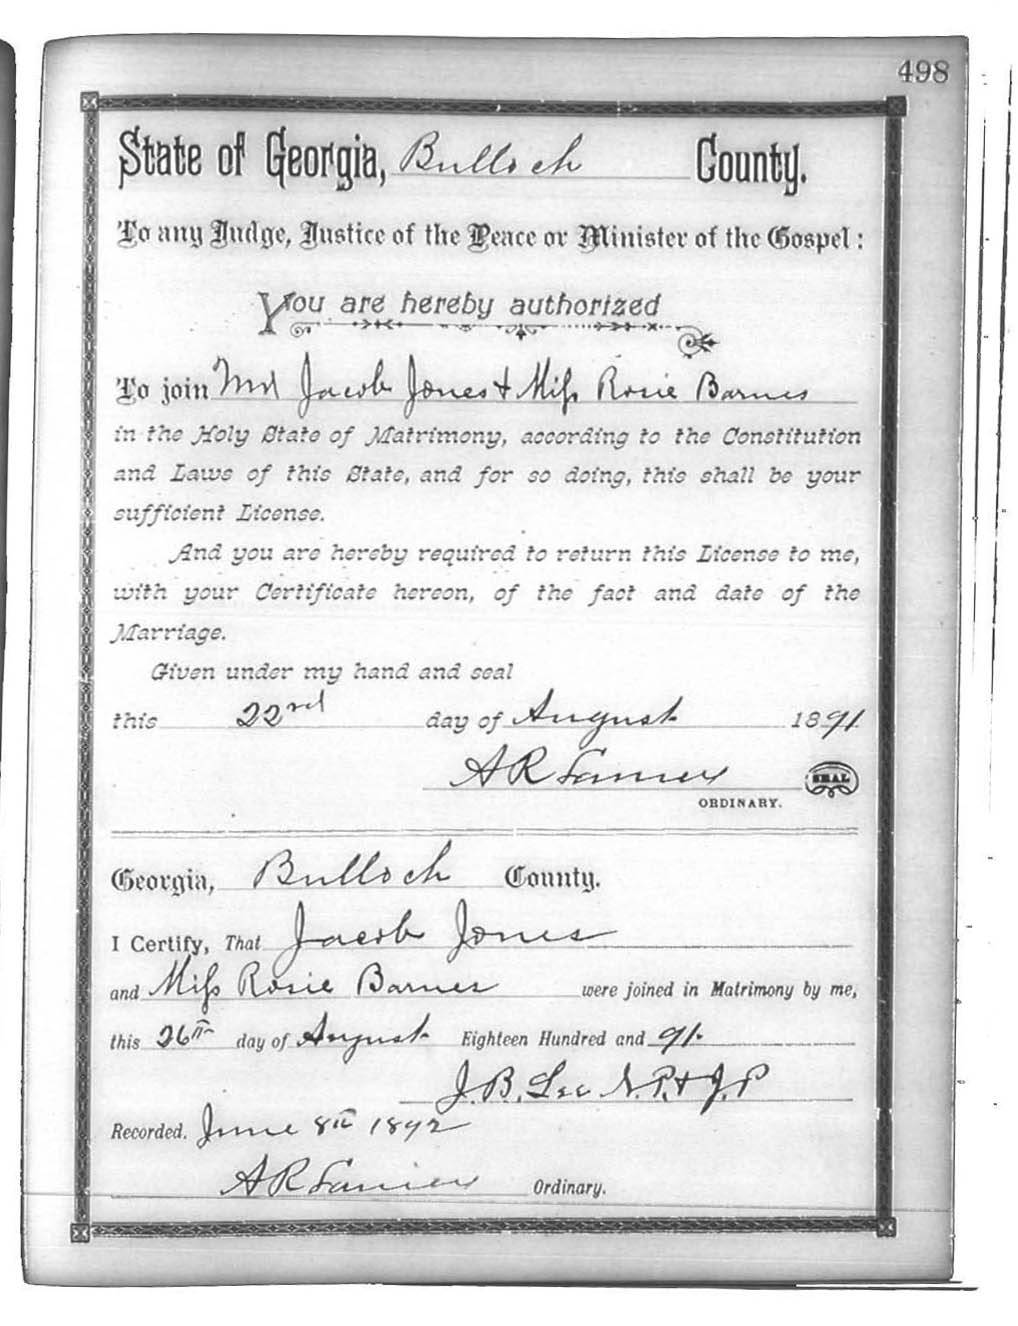 498
State of Georgia, Bulloch County.
To any Judge, Justice of the Peace or Minister of the Gospel:
You are hereby authorized
To join Mr Jacob Jones & Miss Rosie Barnes
in the Holy State of Matrimony, according to the Constitution
and Laws of this State, and for so doing, this shall be your
sufficient License.
And you are hereby required to return this License to me,
with your Certificate hereon, of the fact and date of the
Marriage.
Given under my hand and seal
this 22nd day of August 1891
A R Lanier SEAL
ORDINARY.
Georgia, Bulloch County.
I Certify, That Jacob Jones
and Miss Rosie Barnes were joined in Matrimony by me,
this 26th day of August Eighteen Hundred and 91.
J. B. Lee N.P. & J.P
Recorded. June 8th 1892
A R Lanier Ordinary.